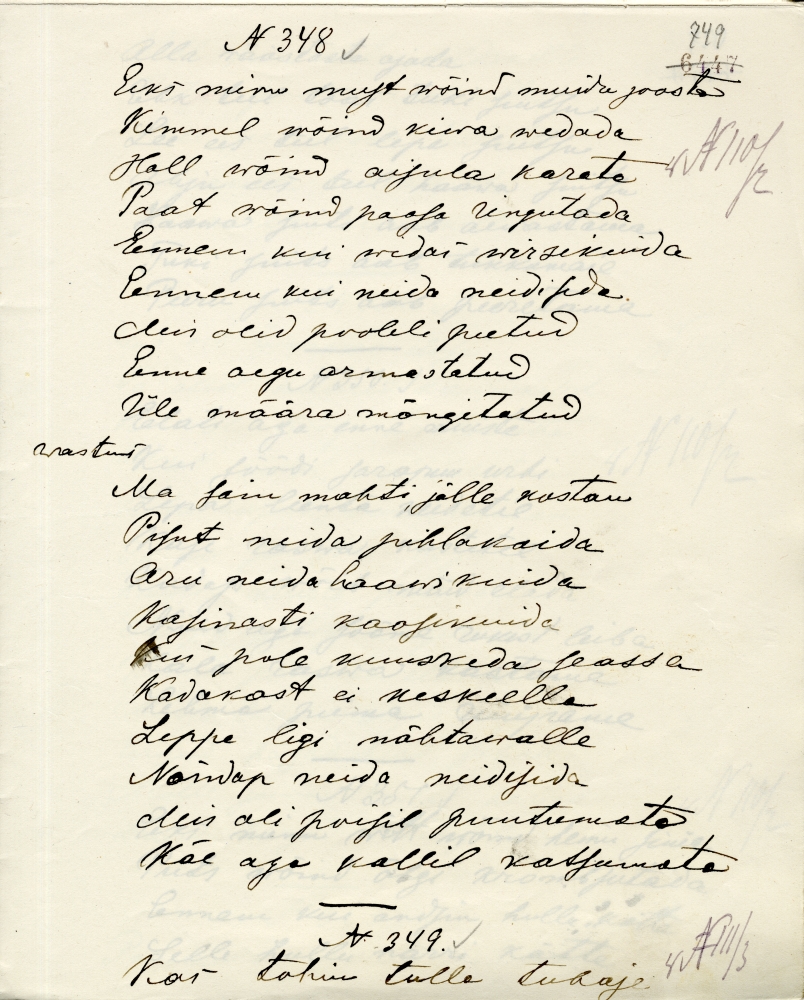 749
6447
N 348
Eeks minu must wõind muida joosta
Kimmel wõind kiwa wedada
N 110/2
Hall wõind aisula karata
Paat wõind paasa ringutada
Ennem kui wedas wirsikuida
Ennem kui neida neidisida
Mis olid pooleli peetud
Enne aegu armastatud
Üle määra mängitatud
wastus
Ma sain mahti jälle kostan
Pisut neida pihlakaida
Aru neida haawikuida
Kasinasti kaasikuida
Kus pole kuuskeda seassa
Kadakast ei keskeella
Leppe ligi nähtawalle
Nõndap neida neidisida
Mis oli poisil puutumata
Käe aga kallil katsumata
N 349.
N 111/3
Kas tohin tulla tubaje